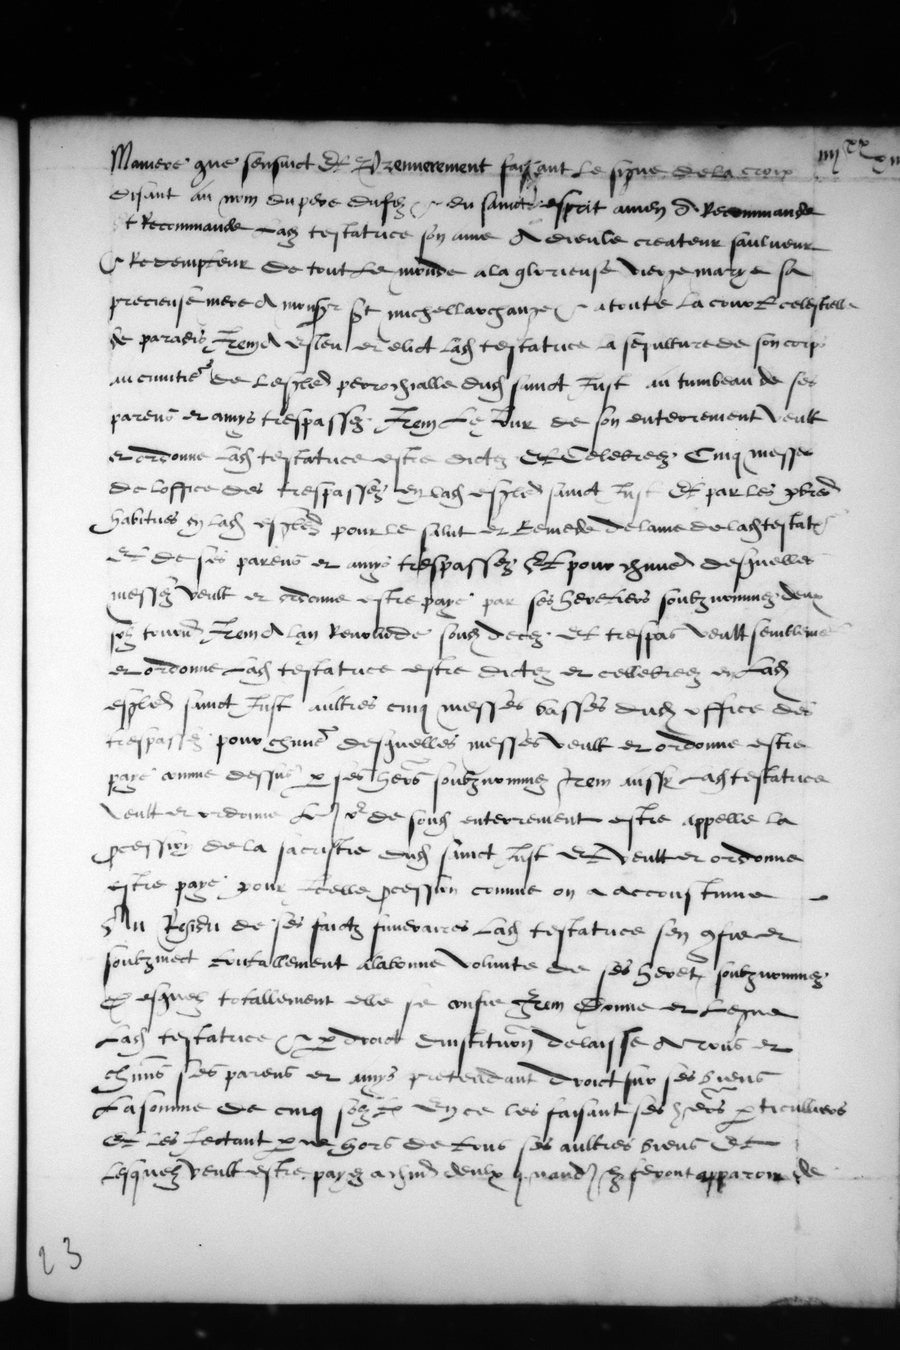 iiii xx xiii
Maniere que sensuict Et Premierement faisant le signe de la croix
disant au nom du pere du filz & du sainct esprit amen A Recommande
et Recommande lad testatrice son ame A dieu le createur saulveur
& Redempteur de tout le monde a la glorieuse vierge marye sa
precieuse mere A monsr st michel larchange & a toute la court celestielle
de paradis Item A esleu et elict lad testatrice la sepulture de son corps
au cimitiere de lesglise perrochialle dud sainct Just au tumbeau de ses
parens et amys trespassez Item le Jour de son enterrement veult
et ordonne lad testatrice estre dictz Et Celebrez Cinq messes
de loffice des trespassez en lad esglise sainct Just Et par les pbres
habitues en lad esglise pour le salut et Remede de lame de lad testatr
Et de ses parens et amys trespassez Et pour chune desquelles
messes veult et ordonne estre paye par ses heretiers soubznommez deux
solz tourn Item A lan Revolu de sond deces Et trespas veult semblement
et ordonne lad testatrice estre dictz et cellebrez en lad
esglise sainct Just aultres cinq messes basses dud office des
trespassez pour chune desquelles messes veult et ordonne estre
paye comme dessus p ses hers soubznommez Item aussy lad testatrice
veult et ordonne le Jr de sond enterrement estre appelle la
pcession de la sacristie dud sainct Just Et veult et ordonne
estre paye pour Icelle pcession comme on a accoustume
Au Residu de ses faictz funeraires lad testatrice sen confie et
soubzmect toutallement a la bonne volunte de ses heret soubznommez
Et esquelz totallement elle se confie Item Donne et Legue
Lad testatrice & p droict dinstitution delaisse A tous et
chuns ses parens et amys pretendant droict sur ses biens
La somme de cinq solz tz En ce les faisant ses hers pticulliers
Et les Jectant p ce hors de tous ses aultres biens Et
Lesquelz veult estre payez a chun deulx quand Ilz feront apparoir de
23